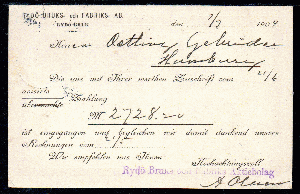 RYDÖ BRUKS- OCH FABRIKS A.B.
RYDÖBRUK
den 7/7 1904
Herren Oetling Gebrüder
Hamburg
Die uns mit Ihrer werthen Zuschrift vom 21/6
avisirte
übermachte Zahlung
M 2728.—
ist eingegangen und begleichen wir damit dankend unsere
Rechnungen vom 1.
Wir empfehlen uns Ihnen
Hochachtungsvoll
Rydö Bruks och Fabriks Aktiebolag